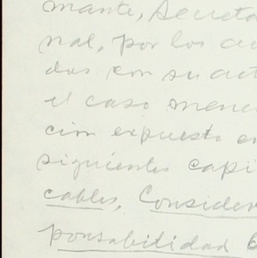 mante, Secreta
nal, por los ac
das con su act
el caso menci
ción expuesto en
siguientes capí
cables, Consider
ponsabilidad